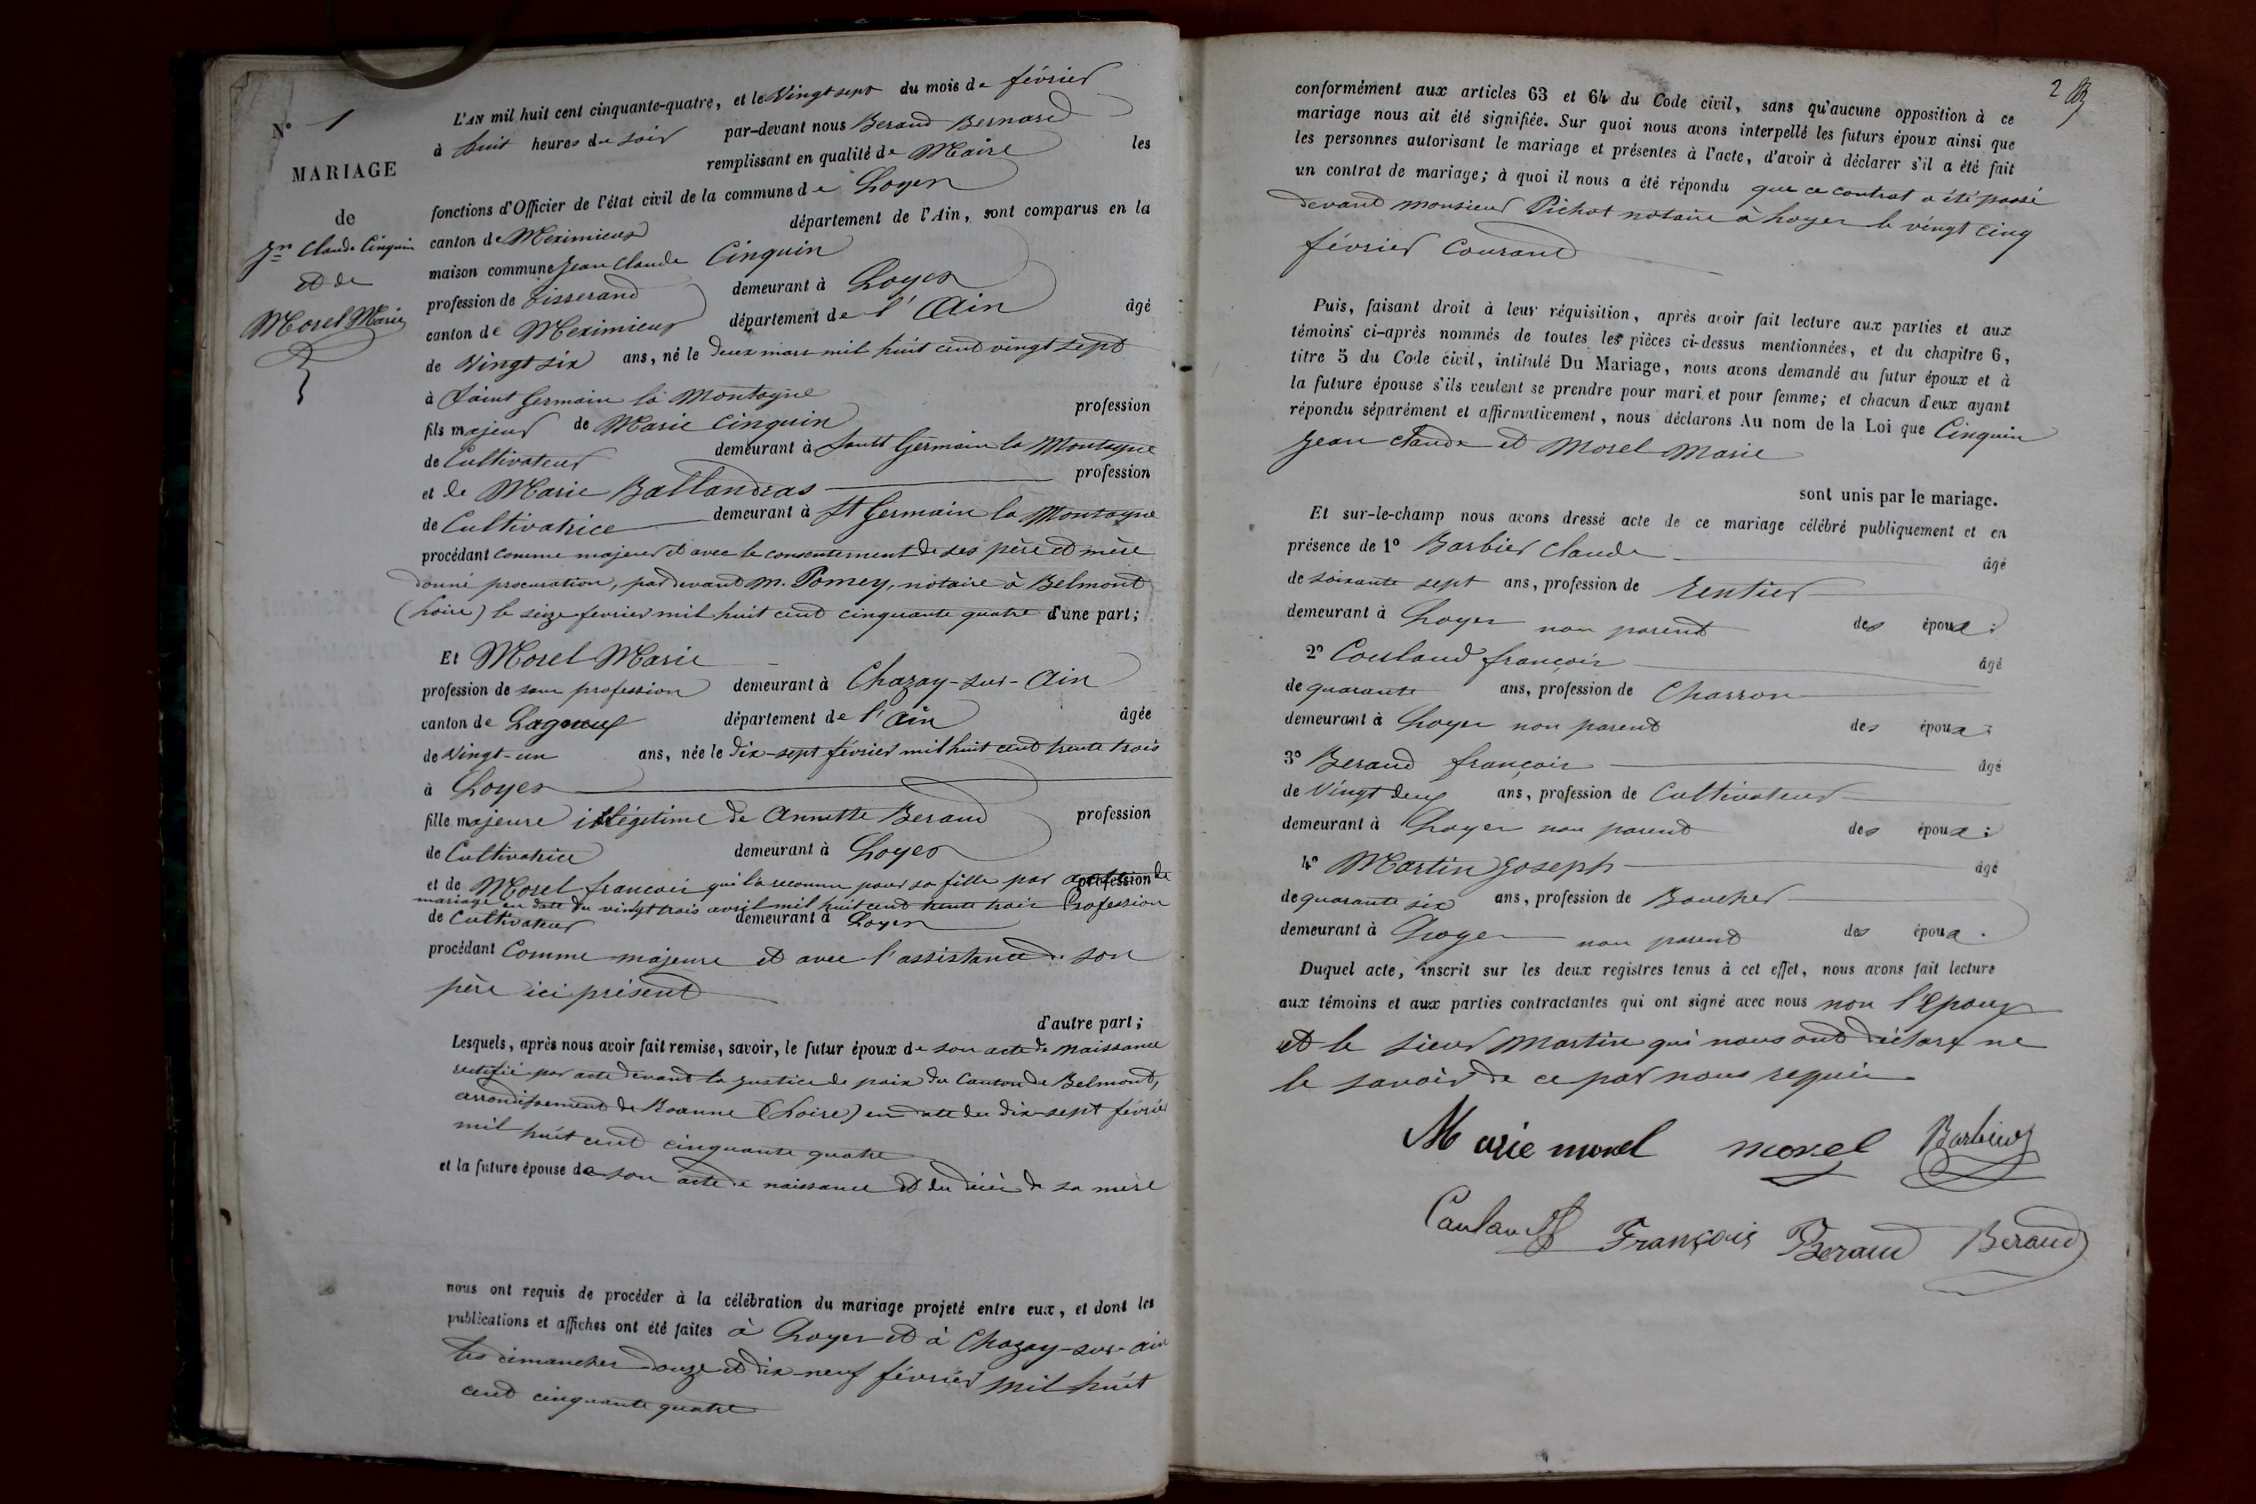 N° 1
MARIAGE
de
Jn Claude Cinquin
et de
Morel Marie
L'AN mil huit cent cinquante-quatre, et le Vingt sept du mois de février
à huit heures du soir par-devant nous Beraud Bernard
remplissant en qualité de Maire les
fonctions d'Officier de l'état civil de la commune de Loyes
canton de Meximieux département de l'Ain, sont comparus en la
maison commune Jean Claude Cinquin
profession de Tisserand demeurant à Loyes
canton de Meximieux département de l'Ain âgé
de Vingt six ans, né le deux mars mil huit cent vingt sept
à Saint Germain la Montagne
fils majeur de Marie Cinquin profession
de Cultivateur demeurant à Saint Germain la Montagne
et de Marie Ballandras profession
de Cultivatrice demeurant à St Germain la Montagne
procédant comme majeur et avec le consentement de ses père et mère
donné procuration, pardevant M. Pomey, notaire à Belmont
(Loire) le seize fevrier mil huit cent cinquante quatre d'une part;
Et Morel Marie
profession de sans profession demeurant à Chazay-sur-Ain
canton de Lagnieux département de l'Ain âgée
de Vingt-un ans, née le dix-sept février mil huit cent trente trois
à Loyes
fille majeure illégitime de Annette Beraud profession
de Cultivatrice demeurant à Loyes
et de Morel francois qui l'a reconnue pour sa fille par acte de profession
mariage en date du vingt trois avril mil huit cent trente trois Profession
de Cultivateur demeurant à Loyes
procédant Comme majeure et avec l'assistance de son
père ici présent
d'autre part;
Lesquels, après nous avoir fait remise, savoir, le futur époux de son acte de naissance
rectifié par acte devant la justice de paix du Canton de Belmont,
arrondissement de Roanne (Loire) en date du dix-sept février
mil huit cent cinquante quatre
et la future épouse de son acte de naissance et du décès de sa mère
nous ont requis de procéder à la célébration du mariage projeté entre eux, et dont les
publications et affiches ont été faites à Loyes et à Chazay-sur-Ain
les dimanches douze et dix-neuf février mil huit
cent cinquante quatre
2
conformément aux articles 63 et 64 du Code civil, sans qu'aucune opposition à ce
mariage nous ait été signifiée. Sur quoi nous avons interpellé les futurs époux ainsi que
les personnes autorisant le mariage et présentes à l'acte, d'avoir à déclarer s'il a été fait
un contrat de mariage; à quoi il nous a été répondu que ce contrat a été passé
devant monsieur Pichot notaire à Loyes le vingt cinq
février Courant
Puis, faisant droit à leur réquisition, après avoir fait lecture aux parties et aux
témoins ci-après nommés de toutes les pièces ci-dessus mentionnées, et du chapitre 6,
titre 5 du Code civil, intitulé Du Mariage, nous avons demandé au futur époux et à
la future épouse s'ils veulent se prendre pour mari et pour femme; et chacun d'eux ayant
répondu séparément et affirmativement, nous déclarons Au nom de la Loi que Cinquin
Jean Claude et Morel Marie
sont unis par le mariage.
Et sur-le-champ nous avons dressé acte de ce mariage célébré publiquement et en
présence de 1° Barbier Claude âgé
de soixante sept ans, profession de Rentier
demeurant à Loyes non parent des époux;
2° Coulaud françois âgé
de quarante ans, profession de Charron
demeurant à Loyes non parent des époux;
3° Beraud françois âgé
de Vingt deux ans, profession de Cultivateur
demeurant à Loyes non parent des époux;
4° Martin Joseph âgé
de quarante six ans, profession de Boucher
demeurant à Loyes non parent des époux.
Duquel acte, inscrit sur les deux registres tenus à cet effet, nous avons fait lecture
aux témoins et aux parties contractantes qui ont signé avec nous non l'Epoux
et le sieur Martin qui nous ont déclaré ne
le savoir de ce par nous requis
Marie morel morel Barbier
Caulaud François Beraud Beraud